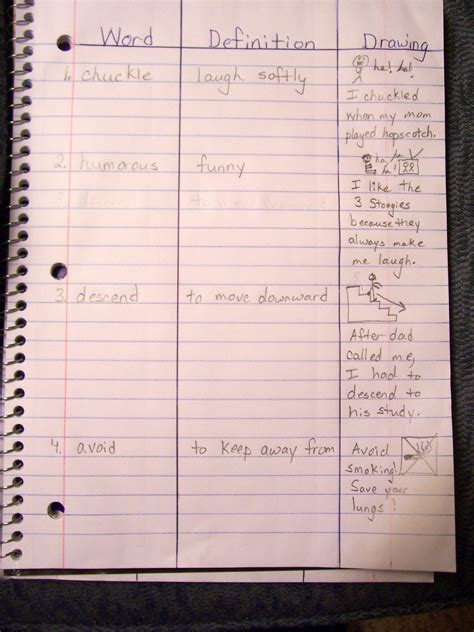 Word Definition Drawing
1. chuckle laugh softly ha! ha!
I chuckled
when my mom
played hopscotch.
2. humorous funny ha, ha
I like the
3 Stoogies
because they
always make
me laugh.
3. descend to move downward
After dad
called me,
I had to
descend to
his study.
4. avoid to keep away from Avoid
smoking!
Save your
lungs!